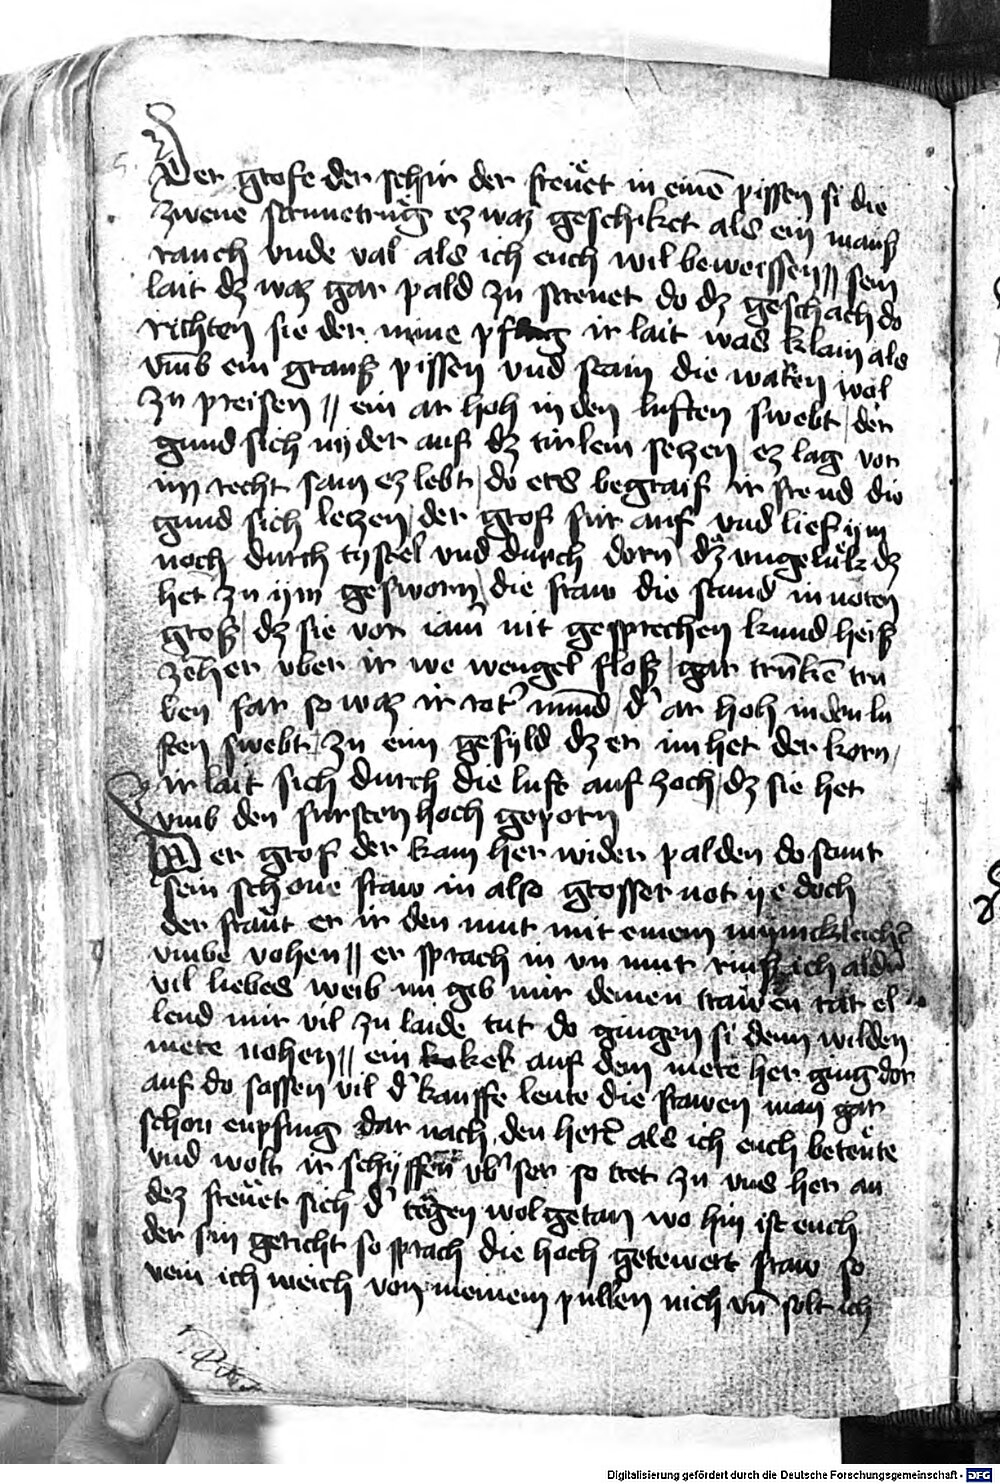 Der grofe der schir der freüet in einē pissen si die
zwene sam etrug ez waz geschiket als ein mauß
rauch vnde val als ich euch wil beweissen || sein
lait dz waz gar pald zu streuet do dz geschach do
richten sie der mine pflag ir lait was klain als
vmb ein grauß pissen vnd stain die waren wol
zu preisen || ein ar hoh in den luften swebt / der
gund sich nyder auf dz türlein seczen / ez lag vor
im recht sam ez lebt / do ers begraif ir freud die
gund sich leczen / der grof für auf vnd lief ym
noch durch tystel vnd durch dorn dz vngelük dz
het zu ym gesworn / die fraw die stund in nöten
groß / dz sie vor iam̄ nit gesprechen kund heiß
zeher vber ir we wengel floß / gar trūkē trü
ben far so waz ir rot' mūnd / d' ar hoh in den lu
ften swebt / zu eim gefyld dz er im het der korn /
ir lait sich durch die luft auf zoch / dz sie het
vmb den fürsten hoch geporn
Der grof der kam her wider palden do fant
sein schone fraw in also grosser not ye doch
der fraüt er ir den mut mit einem mynickleichē
vmbe vohen || er sprach in vn mut muß ich aldo
vil liebes weib nu gib mir deinen träwen rat el
lend mir vil zu laide tut do gingen si dem wilden
mere nohen || ein kok auf dem mere her ging dor
auf do sassen vil d' kauffe leute die frawen man gar
schon enpfing dar nach den herē als ich euch beteüte
vnd wolt ir schyffen vb' ser so tret zu vns her an
dez freüet sich d' tegen wolgetan wo hin ist euch
der sin gericht so sprach die hoch getewert fraw so
vein ich weich von meinem pullen nich vn̄ solt ich